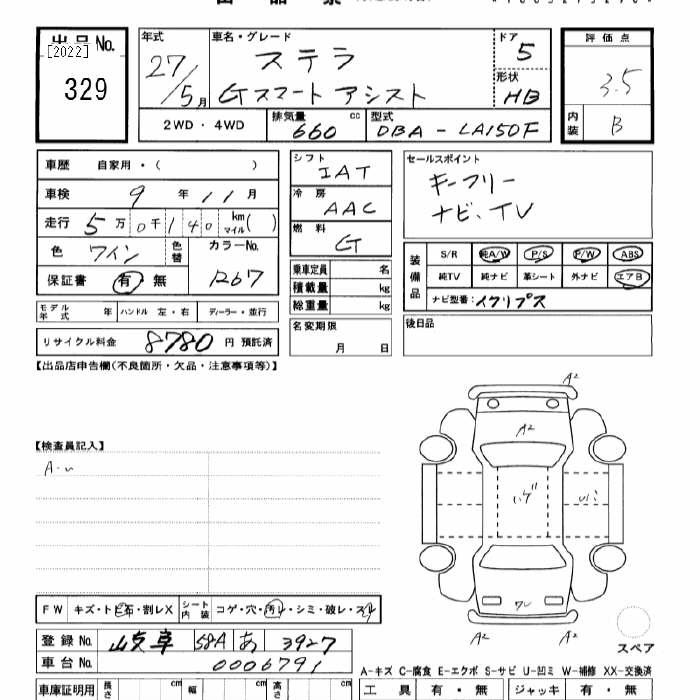 出品No.
[2022]
329
年式
27/5月
車名・グレード
ステラ
Gスマートアシスト
ドア
5
形状
HB
評価点
3.5
内装
B
2WD・4WD
排気量
660
cc
型式
DBA-LA150F
車歴 自家用・( )
車検 9年11月
走行 5万0千140km マイル( )
色 ワイン
色替
カラーNo.
R67
保証書 有・無
シフト
IAT
冷房
AAC
燃料
G
乗車定員 名
積載量 kg
総重量 kg
名変期限
月 日
セールスポイント
キーフリー
ナビ、TV
装備品
S/R 純A/W P/S P/W ABS
純TV 純ナビ 革シート 外ナビ エアB
ナビ型番:イクリプス
後日品
モデル年式 年 ハンドル 左・右 ディーラー・並行
リサイクル料金 8780 円 預託済
【出品店申告欄(不良箇所・欠品・注意事項等)】
【検査員記入】
A2
A2
A2
A2
スペア
FW キズ・トビ石・割レX
シート内装 コゲ・穴・汚レ・シミ・破レ・スレ
登録No. 岐阜 58A あ 3927
車台No. 0006791
A-キズ C-腐食 E-エクボ S-サビ U-凹ミ W-補修 XX-交換済
車庫証明用 長さ cm 幅 cm 高さ cm
工具 有・無 ジャッキ 有・無